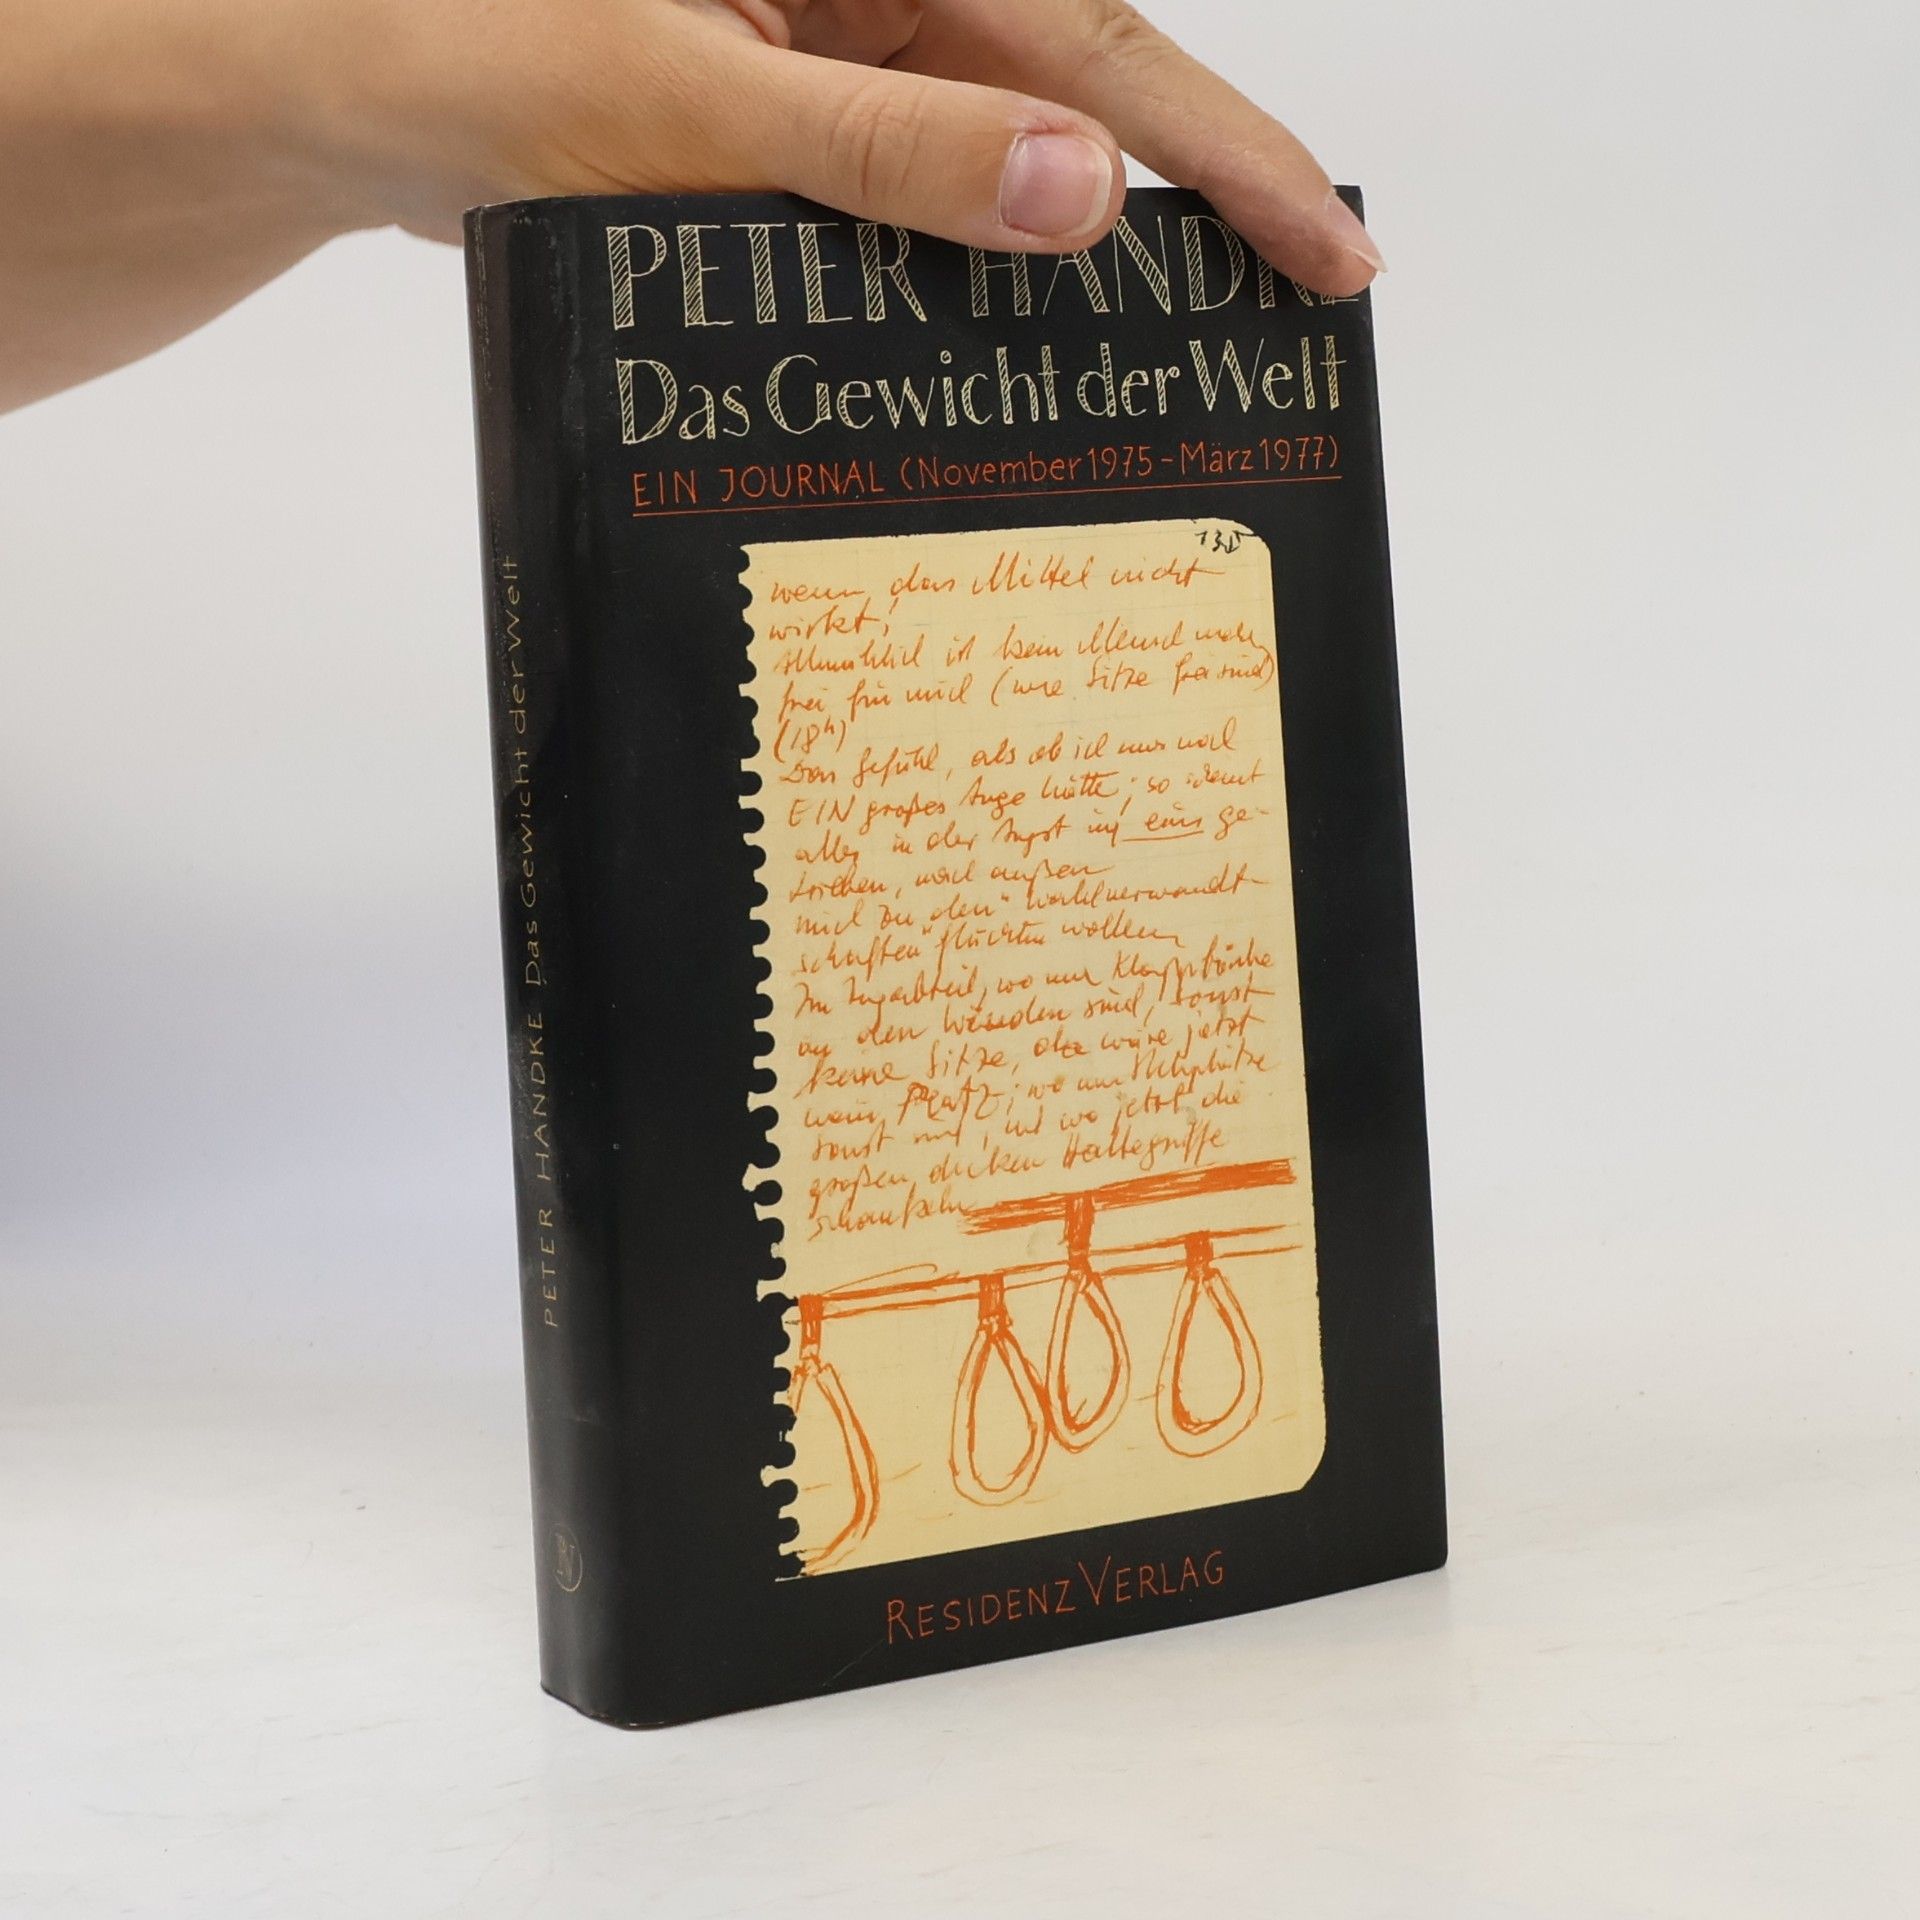 PETER HANDKE
Das Gewicht der Welt
EIN JOURNAL (November 1975 - März 1977)
wenn das Mittel nicht
wirkt!
ist kein Mensch mehr
frei für mich (wie Sitze frei sind)
(18h)
Das Gefühl, als ob ich nur noch
EIN großes Auge hätte; so scheint
alles in der Angst in eins ge-
trieben, nach außen
mich zu den "Wahlverwandt-
schaften" flüchten wollen
Im Zugabteil, wo nur Klappbänke
an den Wänden sind, sonst
keine Sitze, da wäre jetzt
mein Platz; wo nur Stehplätze
sonst sind, und wo jetzt die
großen dicken Haltegriffe
schaukeln
RESIDENZ VERLAG
PETER HANDKE Das Gewicht der Welt